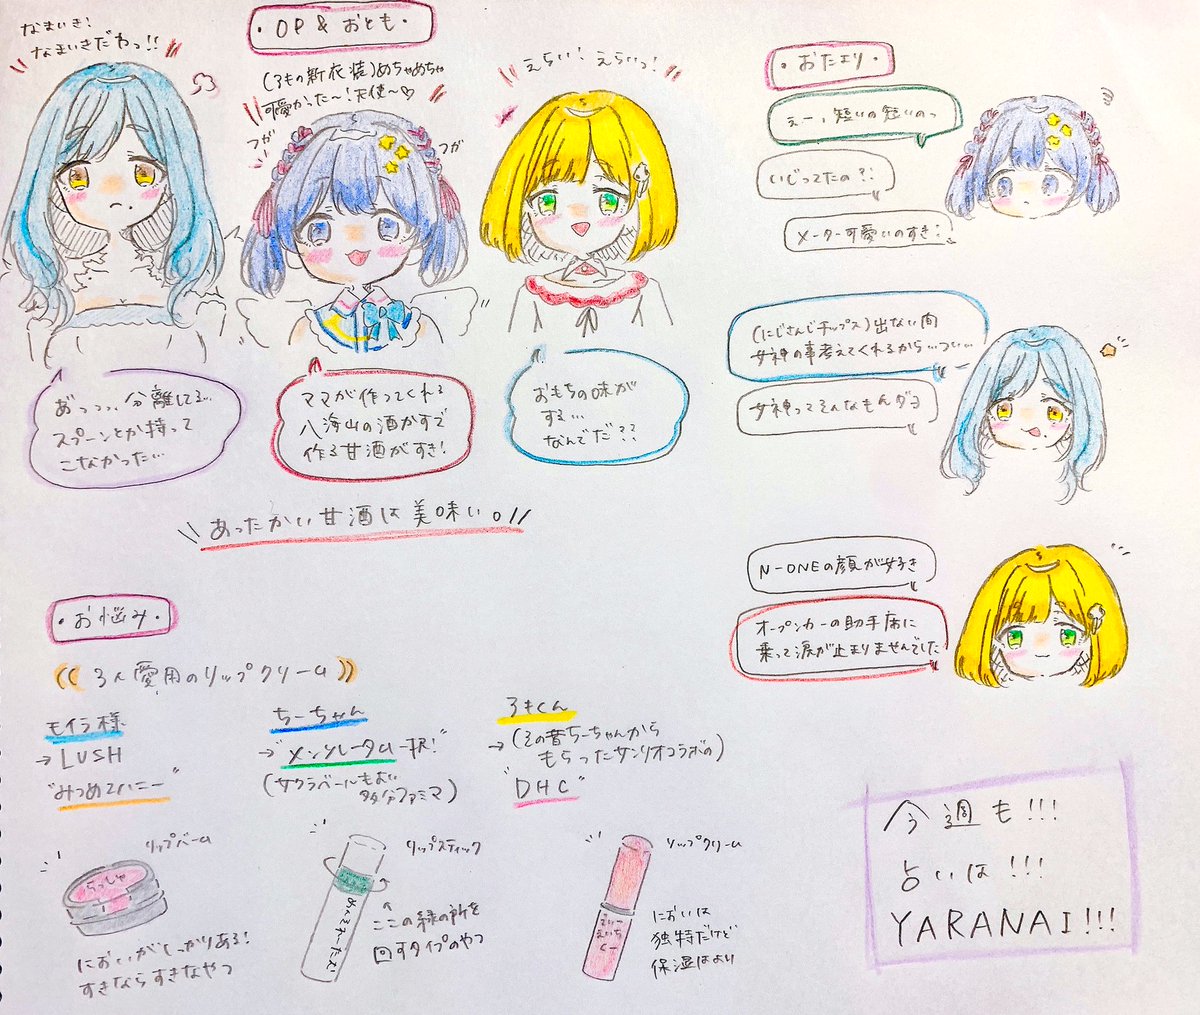 なまいき!
なまいきだわっ!!
・OP & おとも・
(ろきの新衣装)めちゃめちゃ
可愛かった〜!天使〜♡
つが
つが
えらい! えらいっ!
あっっっ、分離してる…
スプーンとか持って
こなかった…
ママが作ってくれる
八海山の酒かすで
作る甘酒がすき!
おもちの味が
する…
なんでだ??
あったかい甘酒は美味い。
・おたより・
えー、短いの短いのっ
いじってたの?!
メーター可愛いのすき!
(にじさんじチップス)出ない間
女神の事考えてくれるから…つい…
女神ってそんなもんダヨ
N-ONEの顔が好き
オープンカーの助手席に
乗って涙が止まりませんでした
・お悩み・
3人愛用のリップクリーム
モイラ様
→LUSH
"みつめてハニー"
ちーちゃん
→"メンソレータム一択!"
(サクラベールもよい
多分ファミマ)
ろきくん
→(その昔ちーちゃんから
もらったサンリオコラボの)
"DHC"
リップバーム
らっしゅ
においがしっかりある!
すきならすきなやつ
リップスティック
めんそれーたむ
↑
ここの緑の所を
回すタイプのやつ
リップクリーム
でぃー
えいち
しー
においは
独特だけど
保湿はよい
今週も!!!
占いは!!!
YARANAI!!!